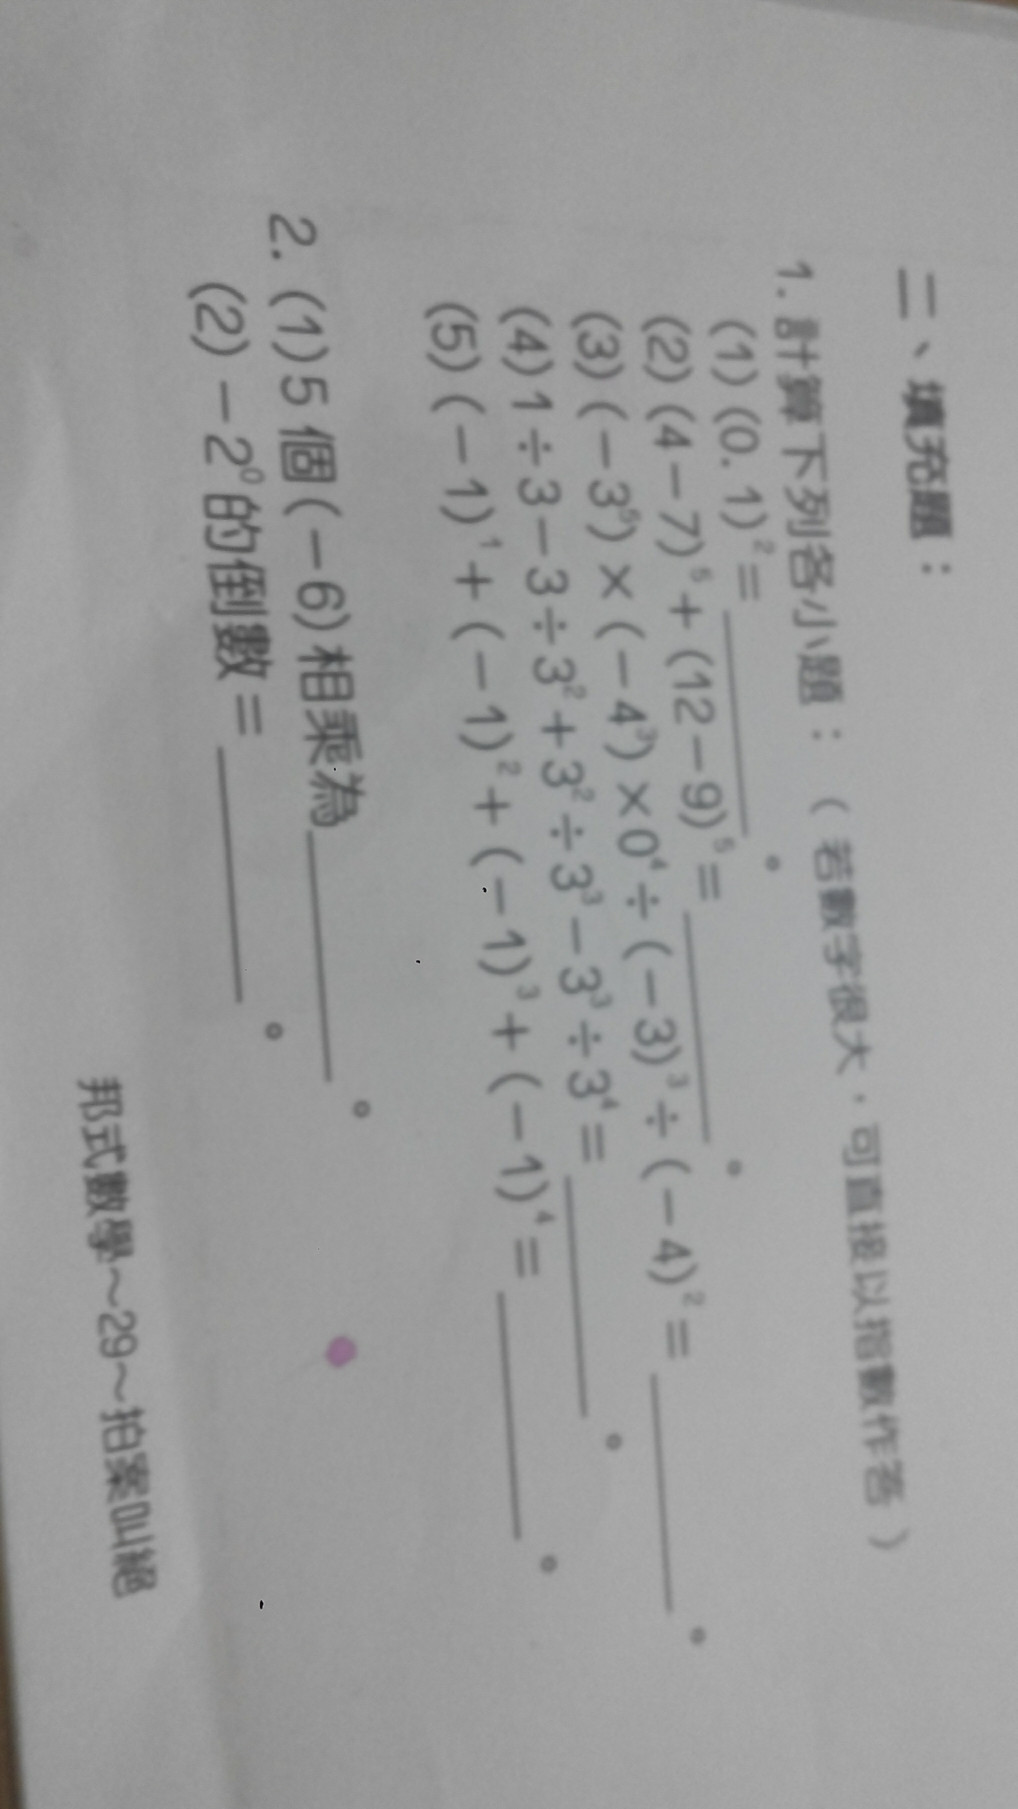 二、填充題：
1. 計算下列各小題：（若數字很大，可直接以指數作答）
(1) (0. 1)²=＿＿＿＿。
(2) (4－7)⁵＋(12－9)⁵＝＿＿＿＿。
(3) (－3⁵)×(－4³)×0⁴÷(－3)³÷(－4)²＝＿＿＿＿。
(4) 1÷3－3÷3²＋3²÷3³－3³÷3⁴＝＿＿＿＿。
(5) (－1)¹＋(－1)²＋(－1)³＋(－1)⁴＝＿＿＿＿。
2. (1) 5 個(－6)相乘為＿＿＿＿。
(2) －2⁰的倒數＝＿＿＿＿。
邦式數學～29～拍案叫絕